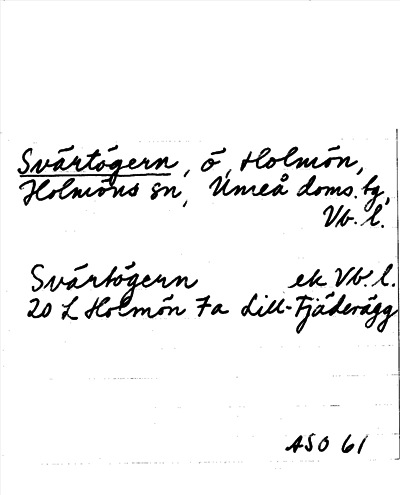 Svärtögern, ö, Holmön,
Holmöns sn, Umeå doms. tg,
Vb. l.
Svärtögern ek Vb. l.
20 L Holmön 7a Lill-Fjäderägg
ASO 61